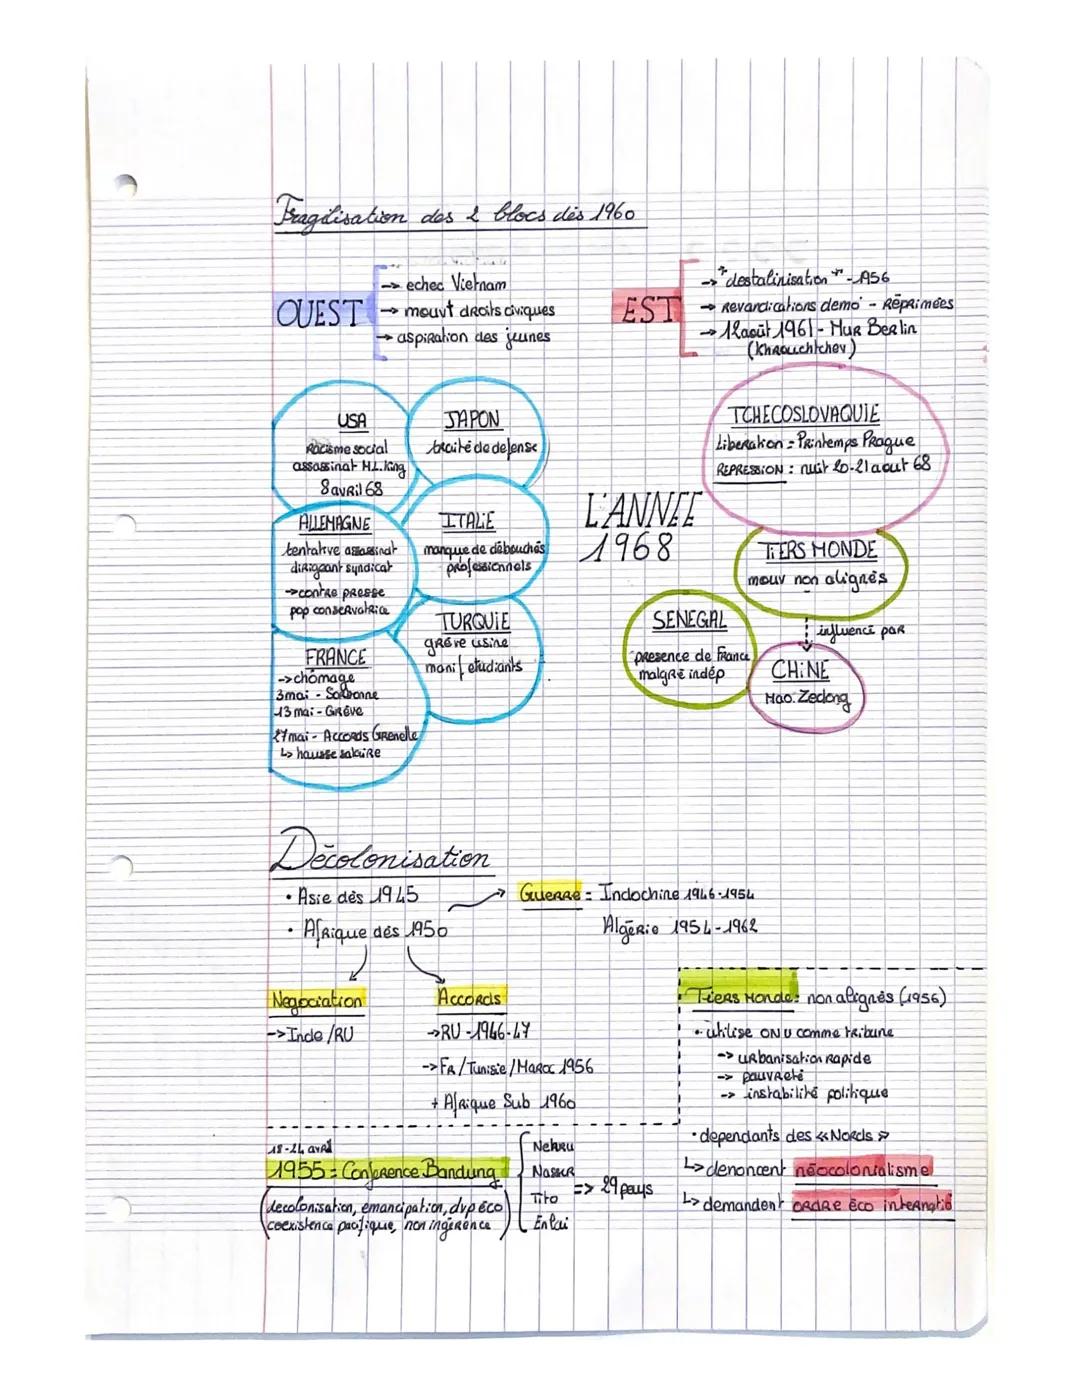 Fragilisation des 2 blocs dès 1960
OUEST
→ echec Vietnam
→ mouvt droits civiques
→ aspiration des jeunes
EST
→ "destalinisation" - 1956
→ Revardications demo - Réprimées
→ 12 août 1961 - Mur Berlin
(Khrouchtchev)
USA
Racisme social
assassinat M.L. King
8 avril 68
JAPON
traité de defense
ALLEMAGNE
tentative assassinat
dirigeant syndicat
→ contre presse
pop conservatrice
ITALIE
manque de débouchés
professionnels
FRANCE
→ chômage
3 mai - Sorbonne
13 mai - Grève
27 mai - Accords Grenelle
↳ hausse salaire
TURQUIE
grève usine
manif etudiants
L'ANNEE
1968
TCHECOSLOVAQUIE
Liberation = Printemps Prague
REPRESSION : nuit 20-21 aout 68
TIERS MONDE
mouv non alignés
influencé par
SENEGAL
presence de France
malgré indép
CHINE
Mao. Zedong
Décolonisation
• Asie dès 1945
• Afrique dès 1950
Guerre = Indochine 1946-1954
Algérie 1954-1962
Negociation
→ Inde / RU
Accords
→ RU - 1946-47
→ FR / Tunisie / Maroc 1956
+ Afrique Sub 1960
18-24 avril
1955 = Conference Bandung
(decolonisation, emancipation, dvp éco
coexistence pacifique, non ingérence)
Nehru
Nasser
Tito
Enlai
=> 29 pays
Tiers Monde : non alignés (1956)
• utilise ONU comme tribune
→ urbanisation rapide
→ pauvreté
→ instabilité politique
• dependants des «Nords»
↳ denoncent néocolonialisme
↳ demandent ordre éco internatio